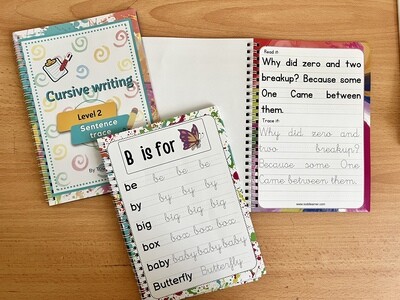 Cursive writing
Level 2
Sentence
trace
By
Read it:
Why did zero and two
breakup? Because some
One Came between
them.
Trace it:
Why did zero and
two breakup?
Because some One
Came between them.
B is for
be be be be
by by by by
big big big big
box box box box
baby baby baby baby
Butterfly Butterfly